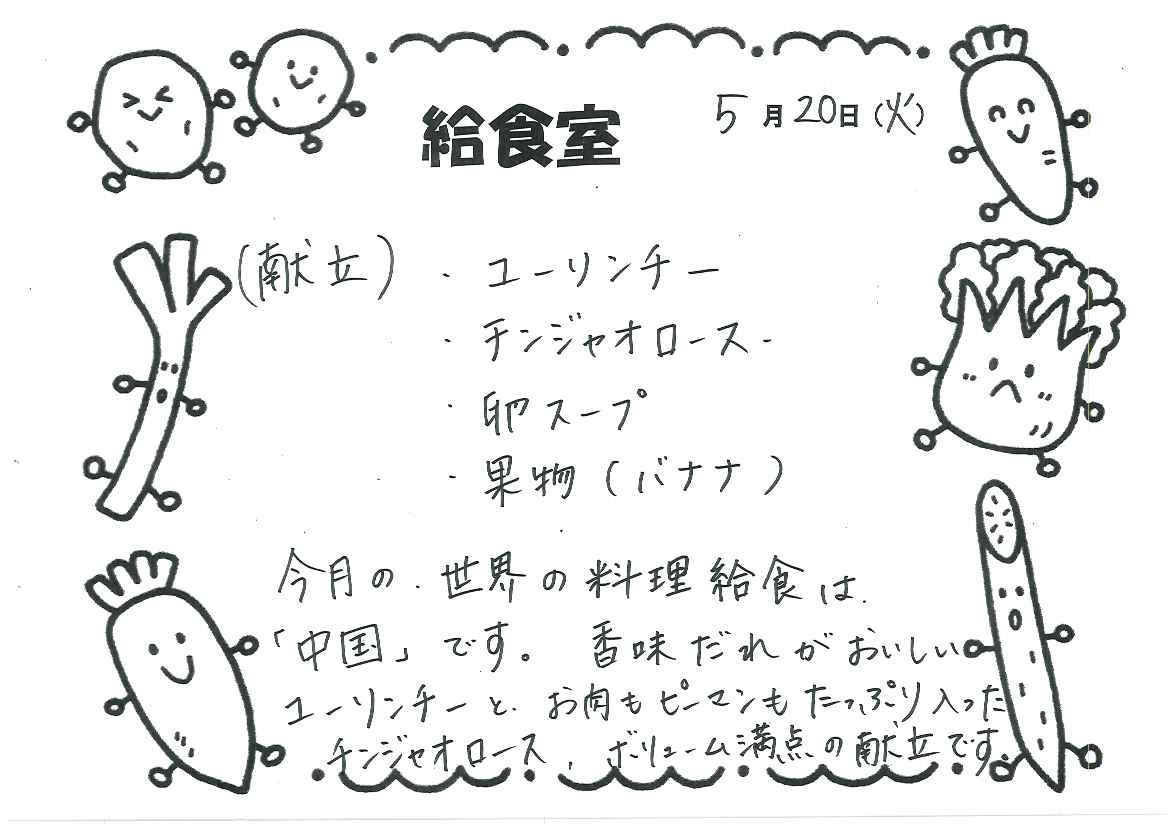 給食室
5月20日(火)
(献立)
・ユーリンチー
・チンジャオロース
・卵スープ
・果物(バナナ)
今月の世界の料理給食は
「中国」です。香味だれがおいしい
ユーリンチーと、お肉もピーマンもたっぷり入った
チンジャオロース、ボリューム満点の献立です。